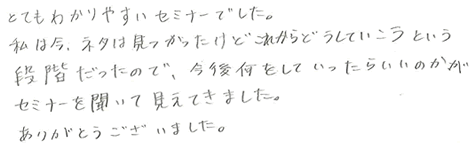 とてもわかりやすいセミナーでした。
私は今、ネタは見つかったけどこれからどうしていこうという
段階だったので、今後何をしていったらいいのかが
セミナーを聞いて見えてきました。
ありがとうございました。